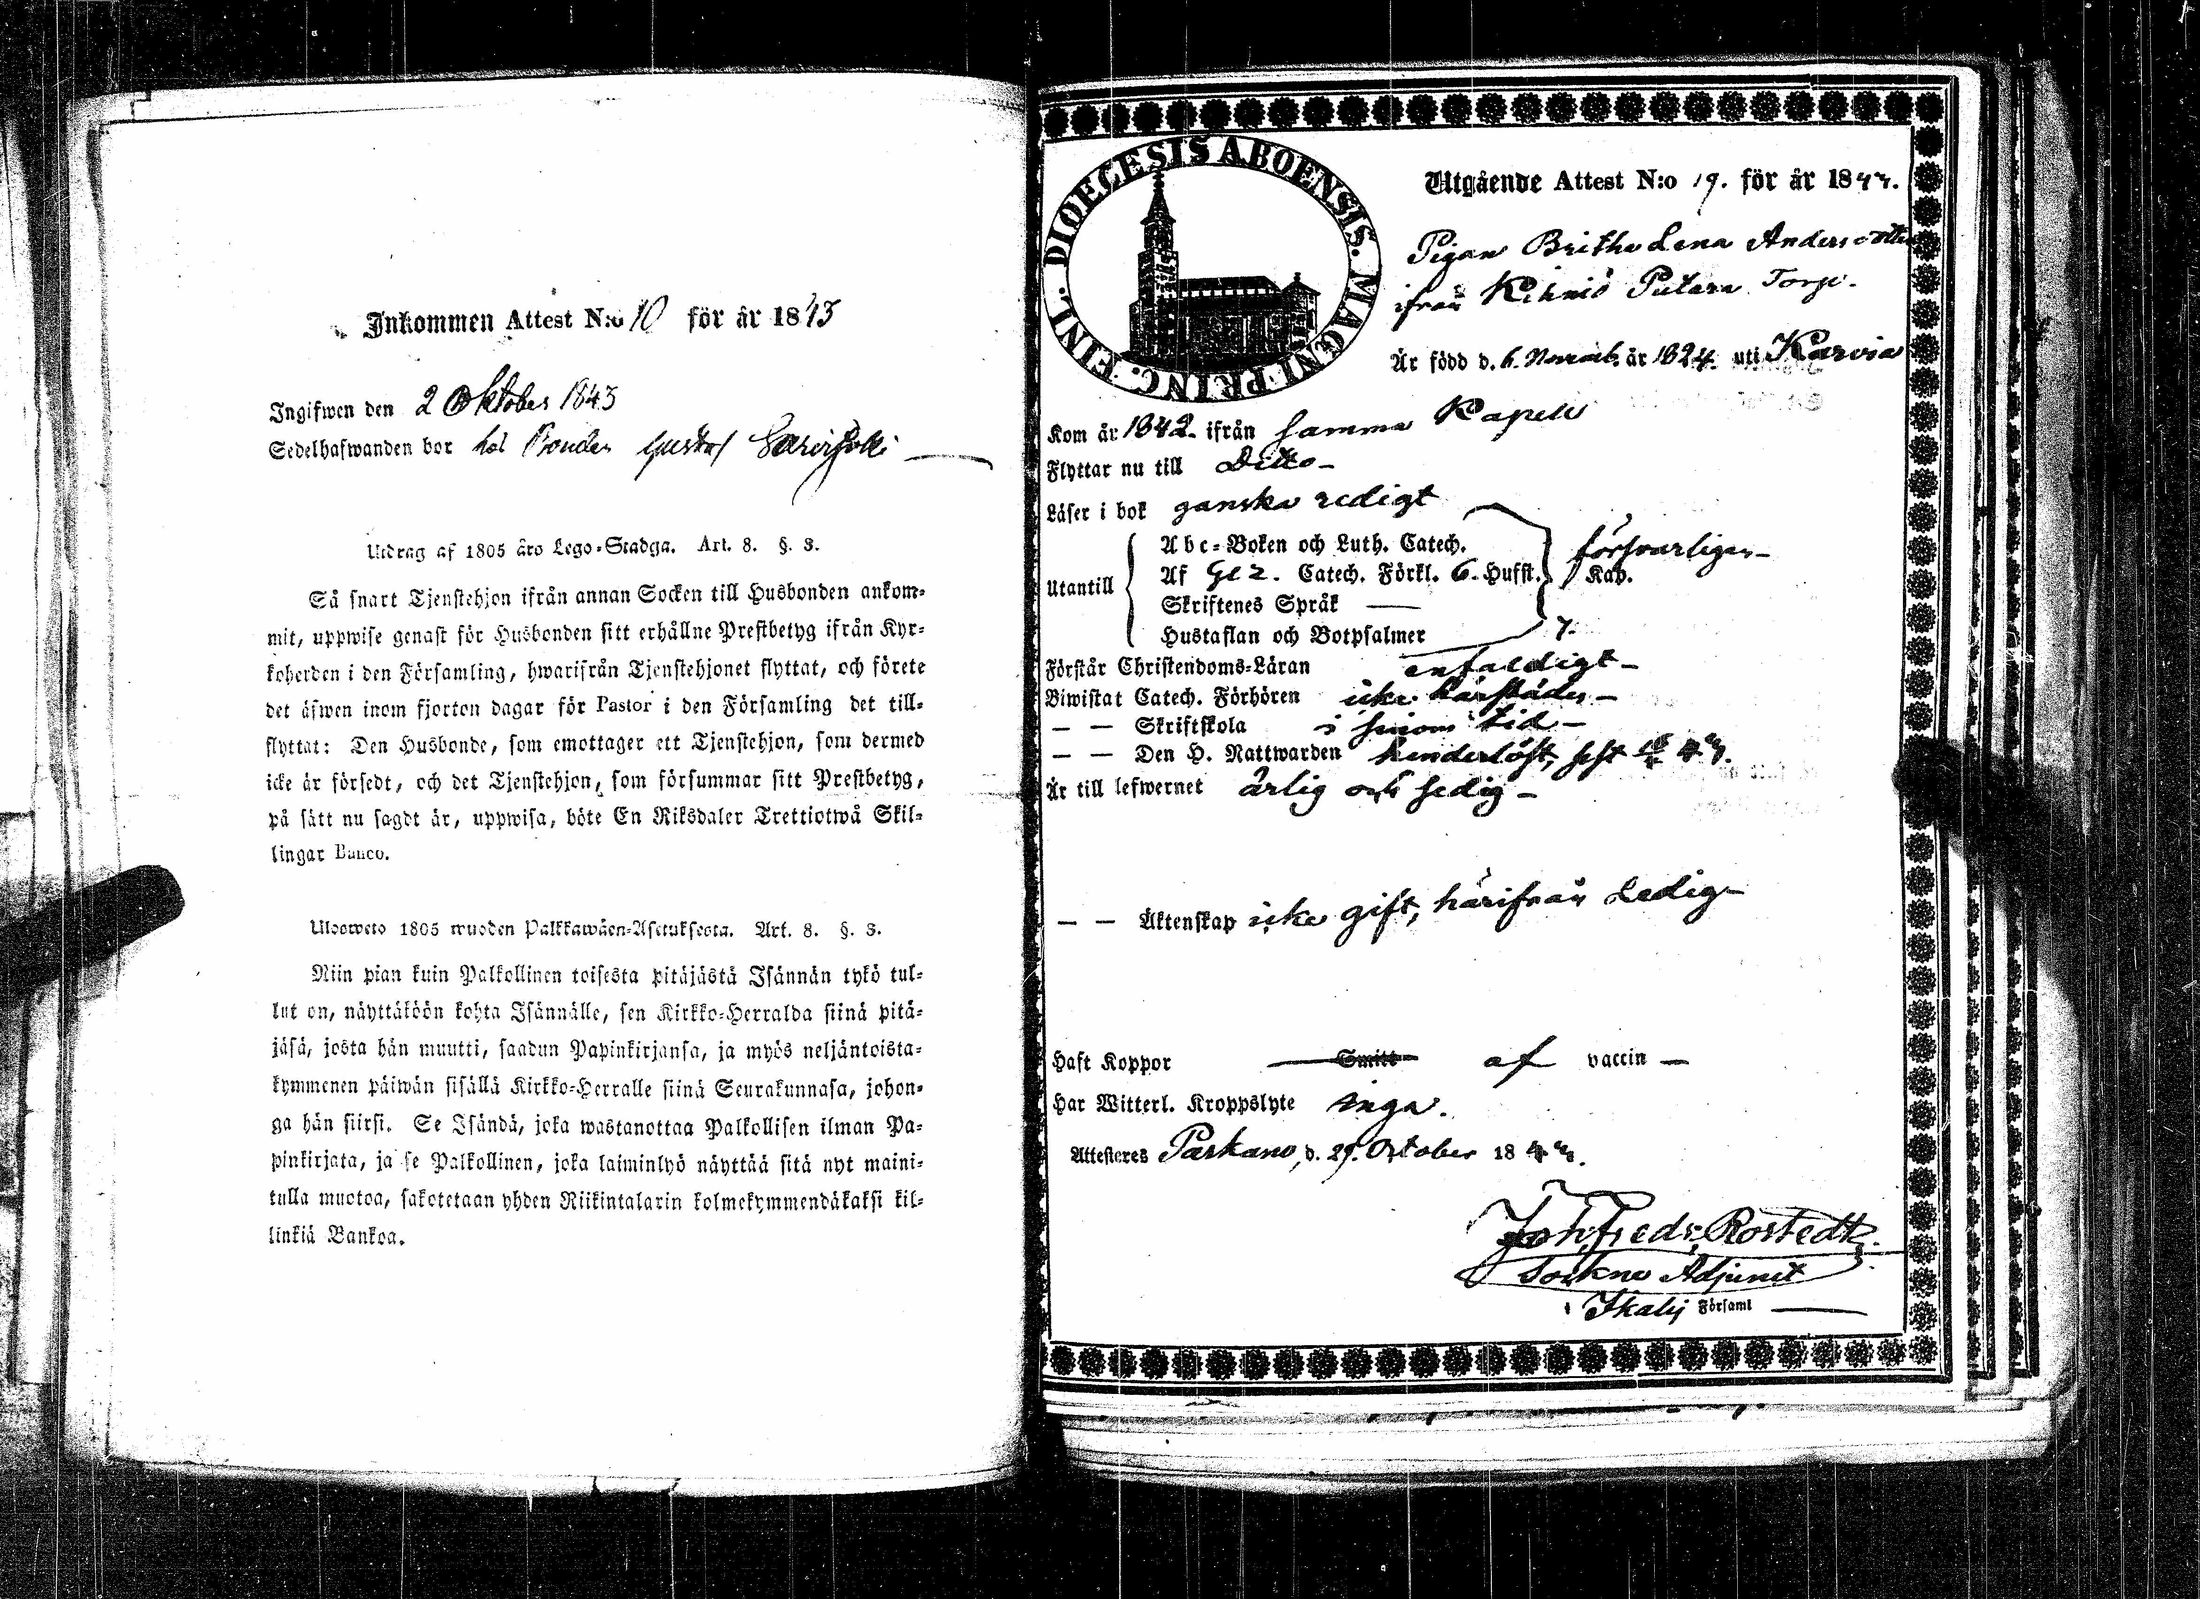 Inkommen Attest N:o 10 för år 1843
Ingifwen den 2 Oktober 1843
Sedelhafwanden bor hos Bonden Gustaf
Utdrag af 1805 års Lego-Stadga. Art. 8. §. 3.
Så snart Tjenstehjon ifrån annan Socken till Husbonden ankom-
mit, uppwise genast för Husbonden sitt erhållne Prestbetyg ifrån Kyr-
koherden i den Församling, hwarifrån Tjenstehjonet flyttat, och förete
det äfwen inom fjorton dagar för Pastor i den Församling det till-
flyttat: Den Husbonde, som emottager ett Tjenstehjon, som dermed
icke är försedt, och det Tjenstehjon, som försummar sitt Prestbetyg,
på sätt nu sagdt är, uppwisa, böte En Riksdaler Trettiotwå Skil-
lingar Banco.
Ulosweto 1805 wuoden Palkkawäen-Asetuksesta. Art. 8. §. 3.
Niin pian kuin Palkollinen toisesta pitäjästä Isännän tykö tul-
lut on, näyttäköön kohta Isännälle, sen Kirkko-Herralda siinä pitä-
jäsä, josta hän muutti, saadun Papinkirjansa, ja myös neljäntoista-
kymmenen päiwän sisällä Kirkko-Herralle siinä Seurakunnasa, johon-
ga hän siirsi. Se Isändä, joka wastanottaa Palkollisen ilman Pa-
pinkirjata, ja se Palkollinen, joka laiminlyö näyttää sitä nyt maini-
tulla muotoa, sakotetaan yhden Riikintalarin kolmekymmendäkaksi kil-
linkiä Bankoa.
DIOECESIS ABOENSIS. MAGNI PRINC. FINL.
Utgående Attest N:o 19. för år 1844.
Pigan Britha Lena Andersdotter
ifrån Kihniö Torp.
Är född d. 6. Novemb. år 1824. uti Karvia
Kom år 1842. ifrån samma Kapell
Flyttar nu till Ditto
Läser i bok ganska redigt
Utantill
Abc-Boken och Luth. Catech. försvarligen
Af Catech. Förkl. 6. Hufst. Kap.
Skriftenes Språk
Hustaflan och Botpsalmer
Förstår Christendoms-Läran enfaldigt
Biwistat Catech. Förhören icke härstädes
— — Skriftskola i sinom tid
— — Den H. Nattwarden
Är till lefwernet ärlig och sedig
— — Äktenskap icke gift, härifrån Ledig
Haft Koppor Smitt af vaccin
Har Witterl. Kroppslyte inga.
Attesteres Parkano, d. 29. October 1844.
Joh. Fredr. Rostedt.
Sockne Adjunct
i Ikalis Församl